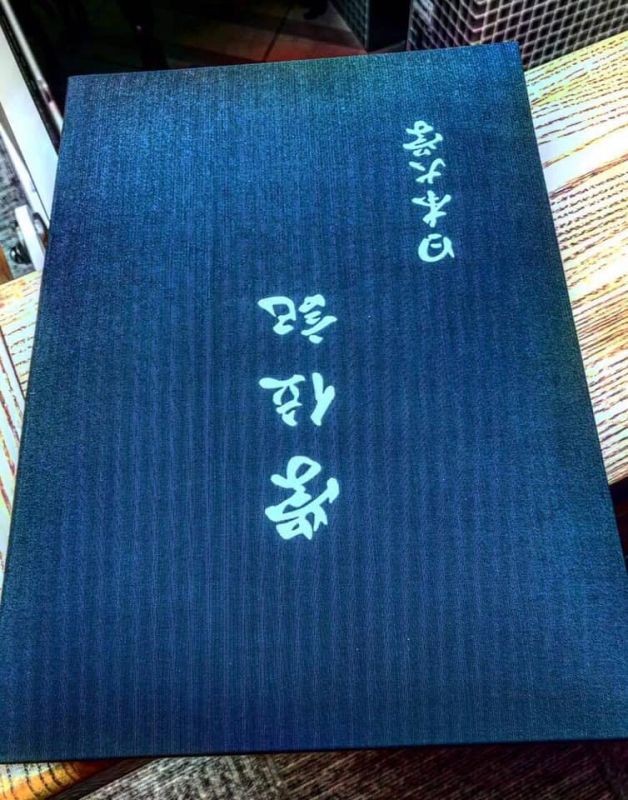 学位記
日本大学